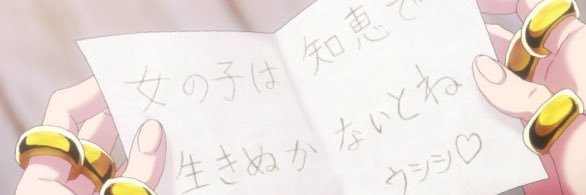 女の子は 知恵で
生きぬかないとね
ウシシ♡